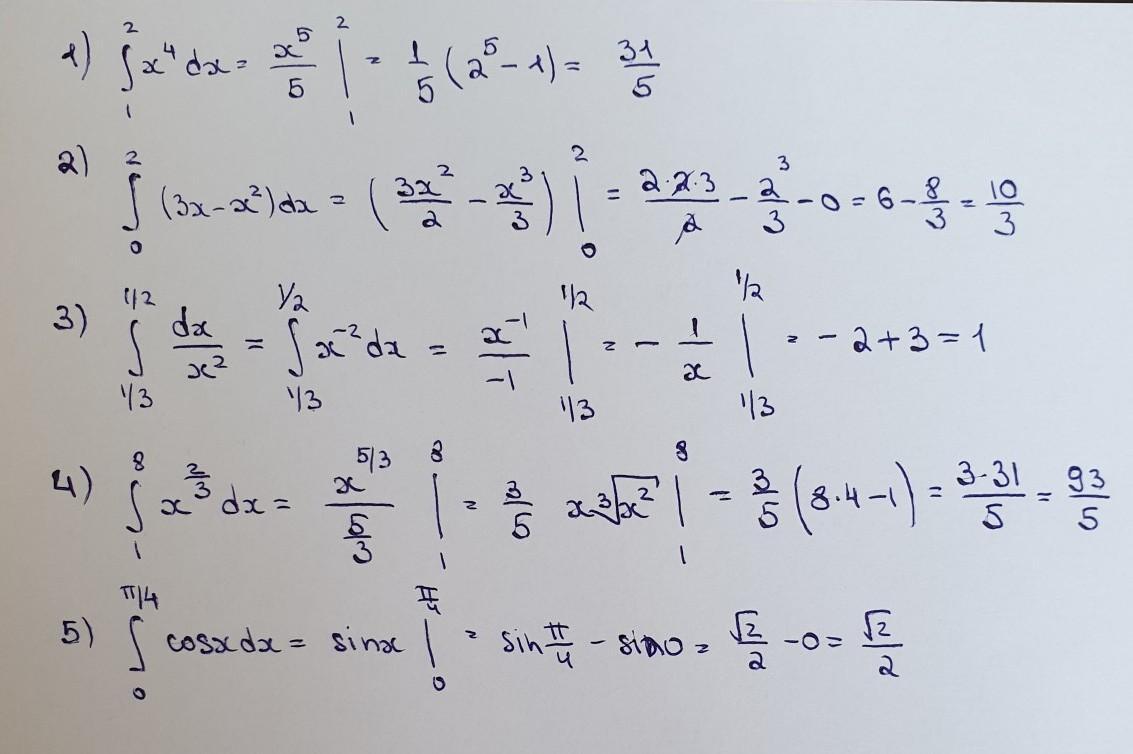 1) ∫₁² x⁴ dx = x⁵/5 |₁² = 1/5 (2⁵ - 1) = 31/5
2) ∫₀² (3x - x²) dx = (3x²/2 - x³/3) |₀² = 2·2·3/2 - 2³/3 - 0 = 6 - 8/3 = 10/3
3) ∫_{1/3}^{1/2} dx/x² = ∫_{1/3}^{1/2} x⁻² dx = x⁻¹/-1 |_{1/3}^{1/2} = - 1/x |_{1/3}^{1/2} = - 2 + 3 = 1
4) ∫₁⁸ x^{2/3} dx = x^{5/3}/(5/3) |₁⁸ = 3/5 x∛x² |₁⁸ = 3/5 (8·4 - 1) = 3·31/5 = 93/5
5) ∫₀^{π/4} cosx dx = sinx |₀^{π/4} = sin π/4 - sin 0 = √2/2 - 0 = √2/2